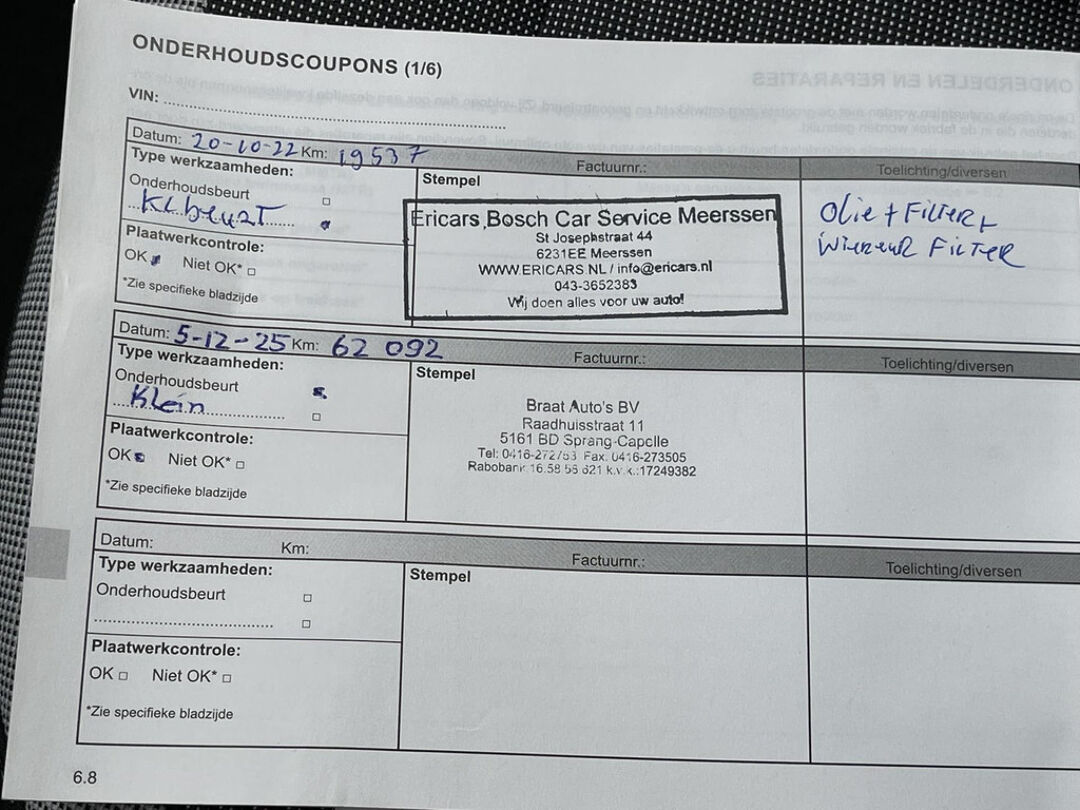 ONDERHOUDSCOUPONS (1/6)
VIN:
Datum: 20-10-22 Km: 19537 Factuurnr.: Toelichting/diversen
Type werkzaamheden:
Onderhoudsbeurt
KLbeurT
Plaatwerkcontrole:
OK Niet OK*
*Zie specifieke bladzijde
Stempel
Ericars Bosch Car Service Meerssen
St Josephstraat 44
6231EE Meerssen
WWW.ERICARS.NL / info@ericars.nl
043-3652383
Wij doen alles voor uw auto!
Olie + FilTER +
FilTER
Datum: 5-12-25 Km: 62 092 Factuurnr.: Toelichting/diversen
Type werkzaamheden:
Onderhoudsbeurt
Klein
Plaatwerkcontrole:
OK Niet OK*
*Zie specifieke bladzijde
Stempel
Braat Auto's BV
Raadhuisstraat 11
5161 BD Sprang-Capelle
Tel: 0416-272753 Fax. 0416-273505
Rabobank 16.58.56.621 k.v.k.:17249382
Datum: Km: Factuurnr.: Toelichting/diversen
Type werkzaamheden:
Onderhoudsbeurt
Plaatwerkcontrole:
OK Niet OK*
*Zie specifieke bladzijde
Stempel
6.8